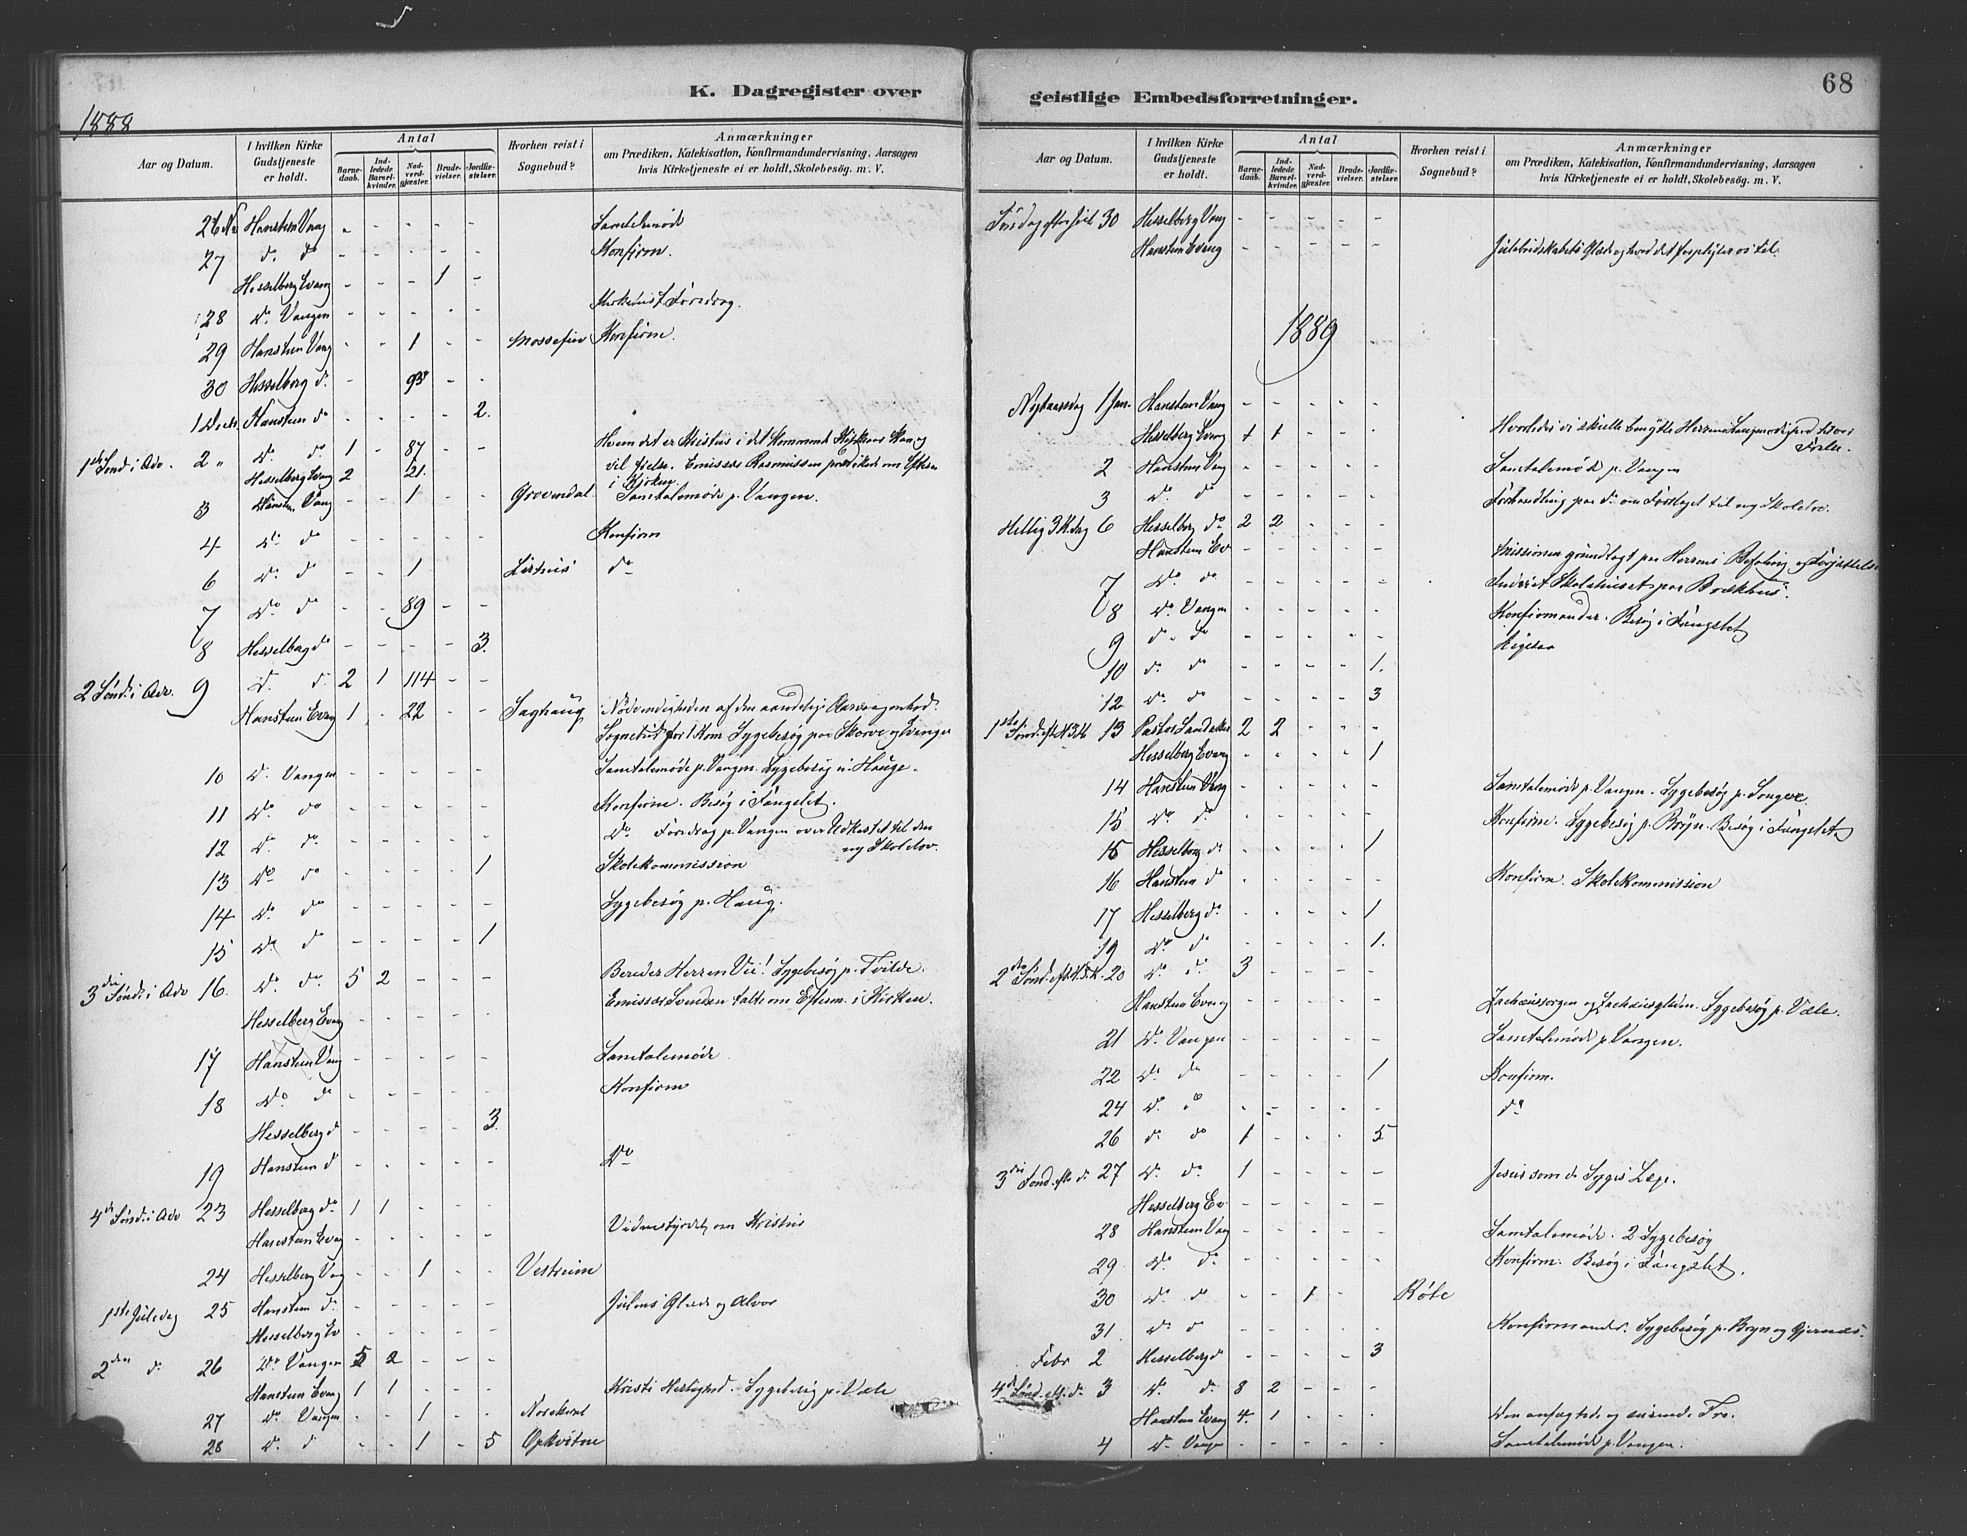 68
K. Dagregister over
geistlige Embedsforretninger.
1888
Aar og Datum.
I hvilken Kirke Gudstjeneste er holdt.
Antal
Barnedaab.
Indledede Barselkvinder.
Nadverdgjester.
Brudevielser.
Jordfæstelser.
Hvorhen reist i Sognebud?
Anmærkninger
om Prædiken, Katekisation, Konfirmandundervisning, Aarsagen
hvis Kirketjeneste ei er holdt, Skolebesøg. m. V.
26 Nov Hansteen Vang - - - - - Samtalemøde
27 do do - - - - - Konfirm.
Hesselberg Evang - - - 1 -
28 do Vangen - - - - - Foredrag.
29 Hansteen Vang - - 1 - - Mossefin Konfirm.
30 Hesselberg do - - 93 - -
1 Decb. Hansteen do - - - - 2.
1ste Sønd. i Adv. 2 " do do 1 - 87 - - Hvem det er Kristus i det kommende Kirkeaar
Hesselberg Evang 2 - 21 - - vil frelse. Emissær Rasmussen prædiked om Efterm.
i Kirken.
3 Hansteen Vang - - 1 - - Grovendal Samtalemøde p. Vangen.
4 do do - - - - - Konfirm
6 do do - - 1 - - Listveis do
7 do do - - 89 - -
8 Hesselberg do - - - - 3.
2 Sønd. i Adv. 9 do do 2 1 114 - -
Hansteen Evang 1 - 22 - - Saghaug Nødvendigheden af den aandelige
Sygebesøg paa Skorve og
10 do Vangen - - - - - Samtalemøde p. Vangen. Sygebesøg i Hauge.
11 do do - - - - - Konfirm. Besøg i Fængslet.
12 do do - - - - - do Foredrag p. Vangen over Udkastet til den
ny Skolelov.
13 do do - - - - 1 Skolekommission
14 do do - - - - - Sygebesøg p. Haug.
15 do do - - - - 1
3die Sønd. i Adv 16. do do 5 2 - - - Bereder Herren Vei! Sygebesøg p. Tvilde.
Hesselberg Evang - - - - - Emissær Svendsen talte om Efterm. i Kirken.
17 Hansteen Vang - - - - - Samtalemøde
18 do do - - - - - Konfirm
Hesselberg do - - - - 3.
19 Hansteen do - - - - - do
4de Sønd. i Adv 23 Hesselberg do 1 1 - - -
Hansteen Evang - - - - - Vidnesbyrdet om Kristus
24 Hesselberg Vang - - 1 - - Vestreim
1ste Juledag 25 Hansteen do - - - - - Julens Glæde og Alvor
Hesselberg Ev - - - - -
2den do 26 do Vangen 5 2 - - -
Hansteen Evang 1 1 - - - Kristi Herlighed. Sygebesøg p. Væle
27 do Vangen - - 1 - -
28 do do - - 1 - 5 Opkvitne
Aar og Datum.
I hvilken Kirke Gudstjeneste er holdt.
Antal
Barnedaab.
Indledede Barselkvinder.
Nadverdgjester.
Brudevielser.
Jordfæstelser.
Hvorhen reist i Sognebud?
Anmærkninger
om Prædiken, Katekisation, Konfirmandundervisning, Aarsagen
hvis Kirketjeneste ei er holdt, Skolebesøg. m. V.
Søndag efter Jul 30 Hesselberg Vang - - - - -
Hansteen Evang - - - - - Julebudskabets Glæde og hvad det forpligter os til.
1889
Nytaarsdag 1 Jan. Hansteen Vang - - - - -
Hesselberg Evang 1 1 - - - Hvorledes vi skulle benytte Herrens Langmodighed til vor
Frelse.
2 Hansteen Vang - - - - - Samtalemøde p. Vangen
3 do do - - - - - Forhandling paa do om Forslaget til ny Skolelov.
Hellig 3 K. dag 6 Hesselberg do 2 2 - - -
Hansteen Ev - - - - - Missionen grundlagt paa Herrens Befaling og Forjættelse
7 do do - - - - - Indviet Skolehuset paa Brækhus.
8 do Vangen - - - - - Konfirmander. Besøg i Fængslet
9 do do - - - - - Ligesaa
10 do do - - - - 1.
12 do do - - - - 3
1ste Sønd. eft. H. 3 K 13 Pastor Sandaker 2 2 - - -
Hesselberg Evang - - - - 1
14 Hansteen Vang - - - - - Samtalemøde p. Vangen. Sygebesøg p. Songve.
15 do do - - - - - Konfirm. Sygebesøg p. Bryn. Besøg i Fængslet
15 Hesselberg do - - - - 1
16 Hansteen do - - - - - Konfirm. Skolekommission
17 Hesselberg do - - - - 1
19 do do - - - - 1.
2den Sønd. eft. H. 3. K. 20 do do 3 - - - -
Hansteen Evang - - - - - Zachæussorgen og Zachæusglæden. Sygebesøg p. Væle.
21 do Vangen - - - - - Samtalemøde p. Vangen.
22 do do - - - - 1 Konfirm.
24 do do - - - - - do
26 do do 1 - - - 5
3die Sønd. eft. do 27 do do 1 - - - - Jesus som de Syges Læge.
Hesselberg Ev - - - - -
28 Hansteen Vang - - - - - Samtalemøde. 2 Sygebesøg
29 do do - - - - - Konfirm. Besøg i Fængslet.
30 do do - - 1 - - Røte
31. do do - - - - - Konfirmander. Sygebesøg p. Bryn og Gjernes.
Febr 2 Hesselberg do - - - - 3
4de Sønd. eft. do 3 do do 8 2 - - -
Hansteen Evang 4. 1 - - - Den anfægtede og seirende Tro.
4 do Vangen - - - - - Samtalemøde p. Vangen.